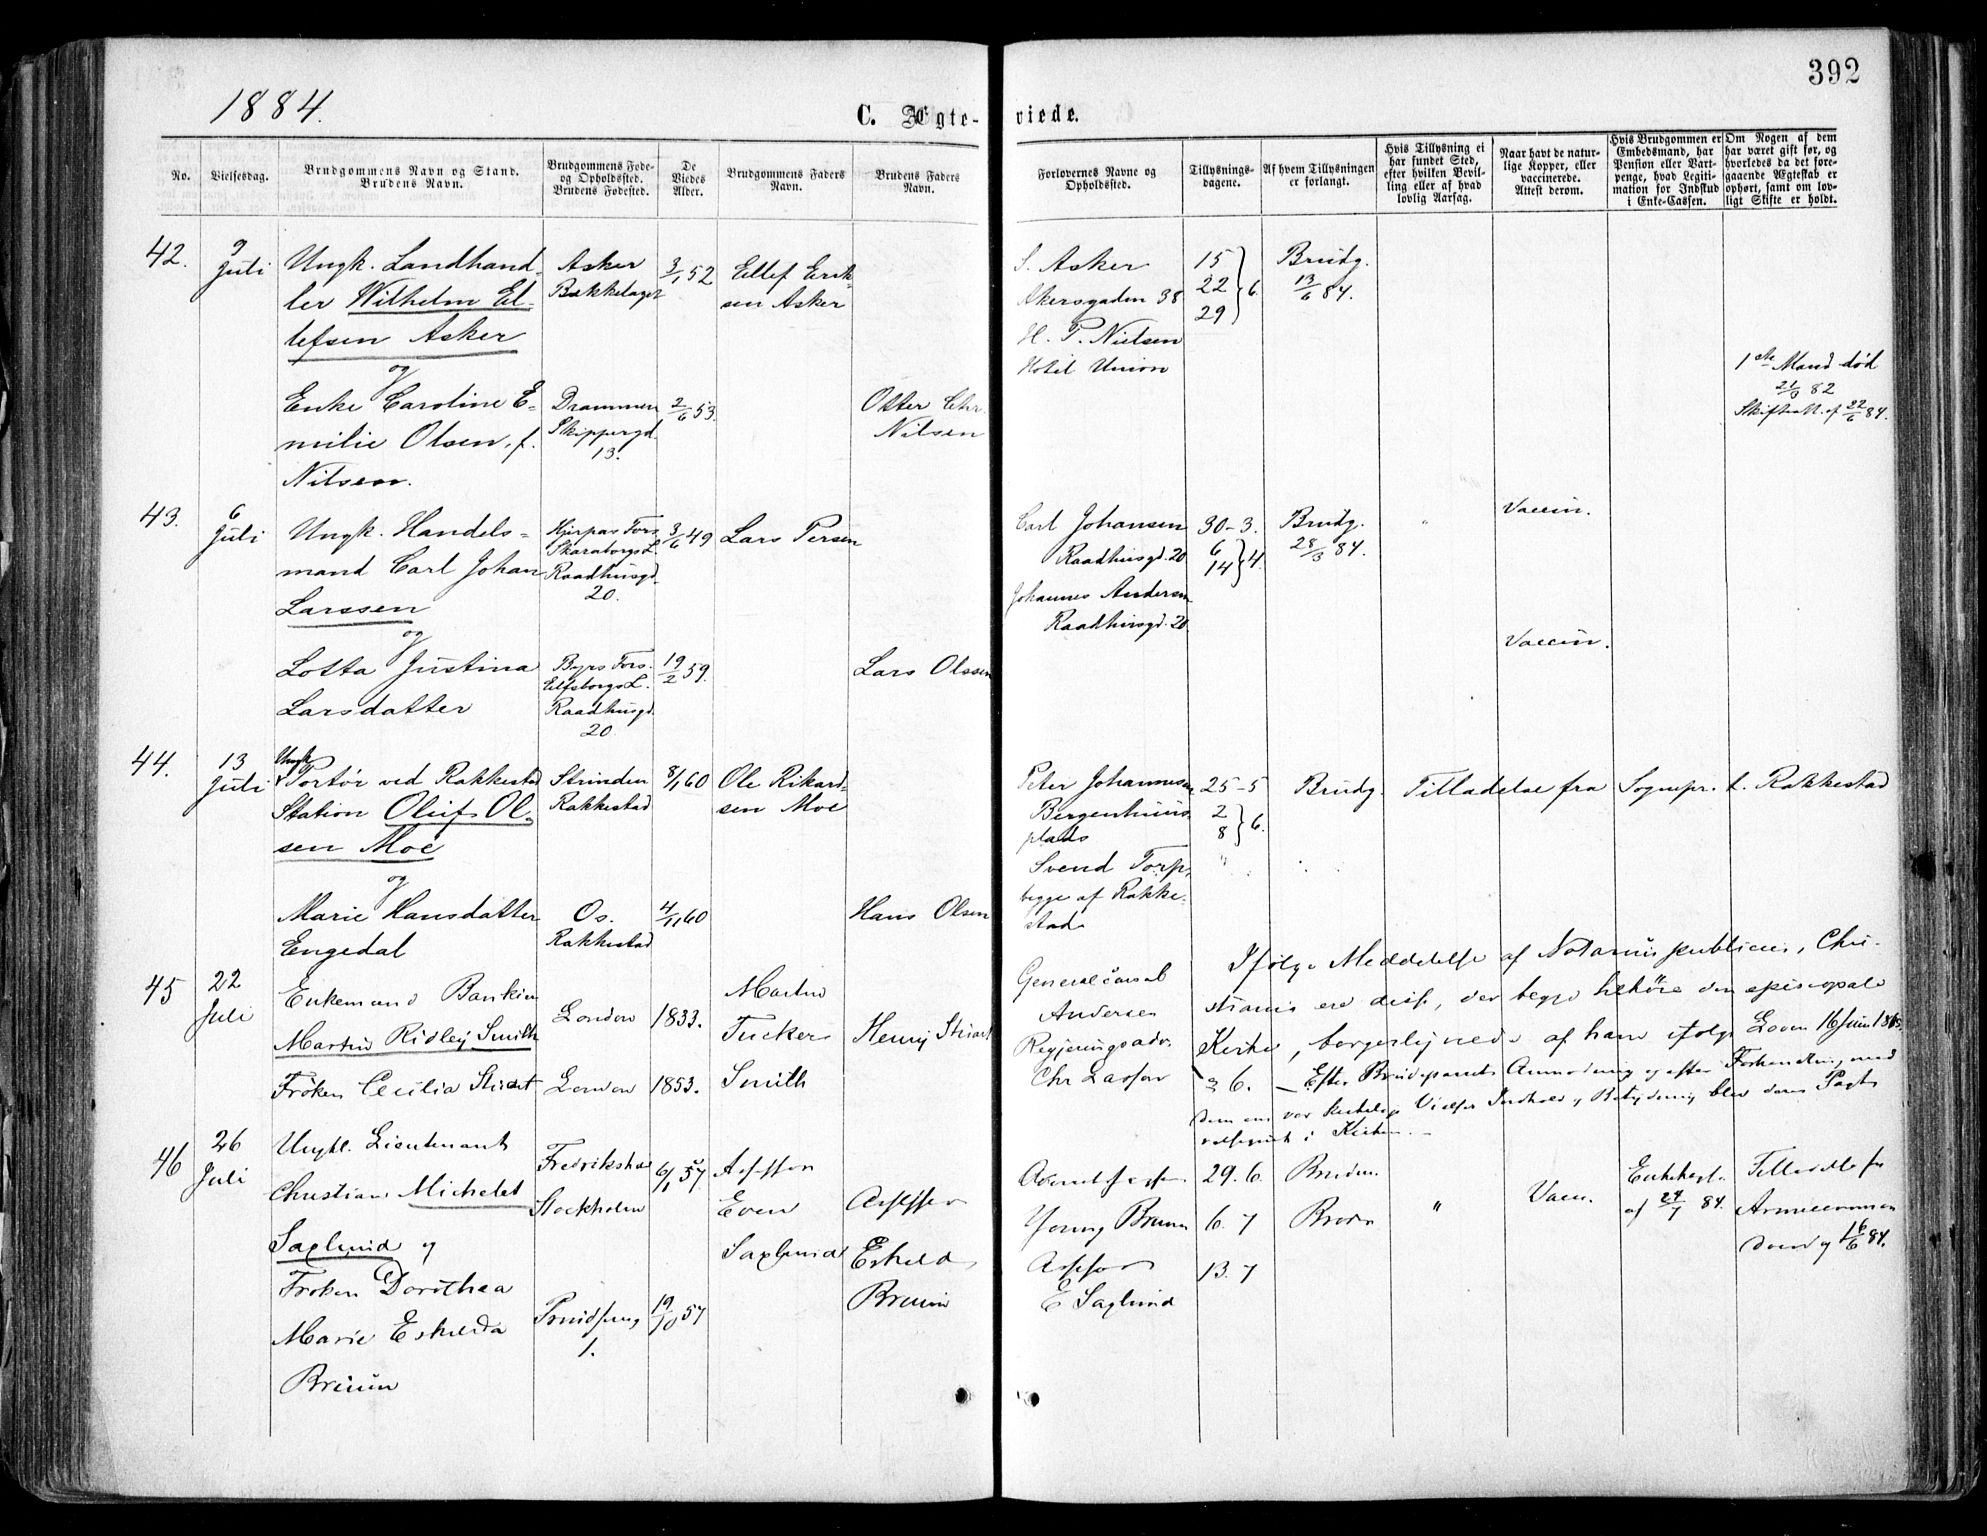 392
1884.
C. Ægte-viede.
No.
Vielsesdag.
Brudgommens Navn og Stand.
Brudens Navn.
Brudgommens Føde-
og Opholdssted.
Brudens Fødested.
De
Viedes
Alder.
Brudgommens Faders
Navn.
Brudens Faders
Navn.
Forlovernes Navne og
Opholdssted.
Tillysnings-
dagene.
Af hvem Tillysningen
er forlangt.
Hvis Tillysning ei
har fundet Sted,
efter hvilken Bevil-
ling eller af hvad
lovlig Aarsag.
Naar havt de natur-
lige Kopper, eller
vaccinerede.
Attest derom.
Hvis Brudgommen er
Embedsmand, har
Pension eller Vart-
penge, hvad Legiti-
mation for Indskud
i Enke-Cassen.
Om Nogen af dem
har været gift før, og
hvorledes da det fore-
gaaende Ægteskab er
ophørt, samt om lov-
ligt Skifte er holdt.
42.
9
Juli
Ungk. Landhand-
ler Wilhelm El-
lefsen Asker
og
Enke Caroline E-
milie Olsen, f.
Nilsen.
Asker
Bakkelaget
Drammen
Skippergd.
13.
3/1 52
2/6 53.
Ellef Erik-
sen Asker
Otter Chr.
Nilsen
S. Asker
Akersgaden 38
H. P. Nielsen
Hotel Union
15
22 } 6.
29
Brudg.
13/6 84.
1ste Mand død
21/9 82
Skifteatt. af 22/6 84.
43.
6
Juli
Ungk. Handels-
mand Carl Johan
Larssen
og
Lotta Justina
Larsdatter
Hjerpas Fors.
Skaraborgs L.
Raadhusgd.
20.
Byrs Fors.
Elfsborgs L.
Raadhusgd.
20.
3/6 49
19/2 59.
Lars Persen
Lars Olssen
Carl Johansen
Raadhusgd. 20
Johannes Andersen
Raadhusgd. 20.
30-3.
6
14 } 4.
Brudg.
28/3 84.
"
Vaccin.
Vaccin.
44.
13
Juli
Ungk.
Portør ved Rakkestad
Station Oluf Ol-
sen Moe
og
Marie Hansdatter
Engedal
Strinden
Rakkestad
Os.
Rakkestad
8/1 60
4/11 60
Ole Rikard-
sen Moe
Hans Olsen
Peter Johannesen
Bergenhuus
plads
Svend Torp,
begge af Rakke-
stad
25-5
2
8 } 6.
"
Brudg.
Tilladelse fra Sognepr. t. Rakkestad
45
22
Juli
Enkemand Bankier
Martin Ridley Smith
Frøken Cecilia Stuart
London
London
1833.
1853.
Martin
Tucker
Smith
Henry Stuart
Generalconsul
Andersen
Regjeringsadv.
Chr Lasson
Ifølge Meddelelse af Notarius publicus, Chri-
stiania ere disse, der begge tilhøre den episcopale
Kirke, borgerlig viede af ham ifølge Loven 16 Juni 1845.
Efter Brudeparrets Anmodning og efter Forhandling med
dem om vor kirkelige Vielses Indhold og Betydning blev deres Pagt
velsignet i Kirken.
46
26
Juli
Ungkl. Lieutenant
Christian Michelet
Saxlund og
Frøken Dorothea
Marie Eskelda
Bruun
Fredrikshald
Stockholm
1.
6/1 57
19/10 57
Assessor
Even
Saxlund
Assessor
Eskeld
Bruun
Young Bruun
Assessor
E Saxlund
29. 6.
6. 7
13. 7
Bruden.
"
Vacc.
Enkekasse
af 24/7 84.
Tilladelse fr
16/6 84.